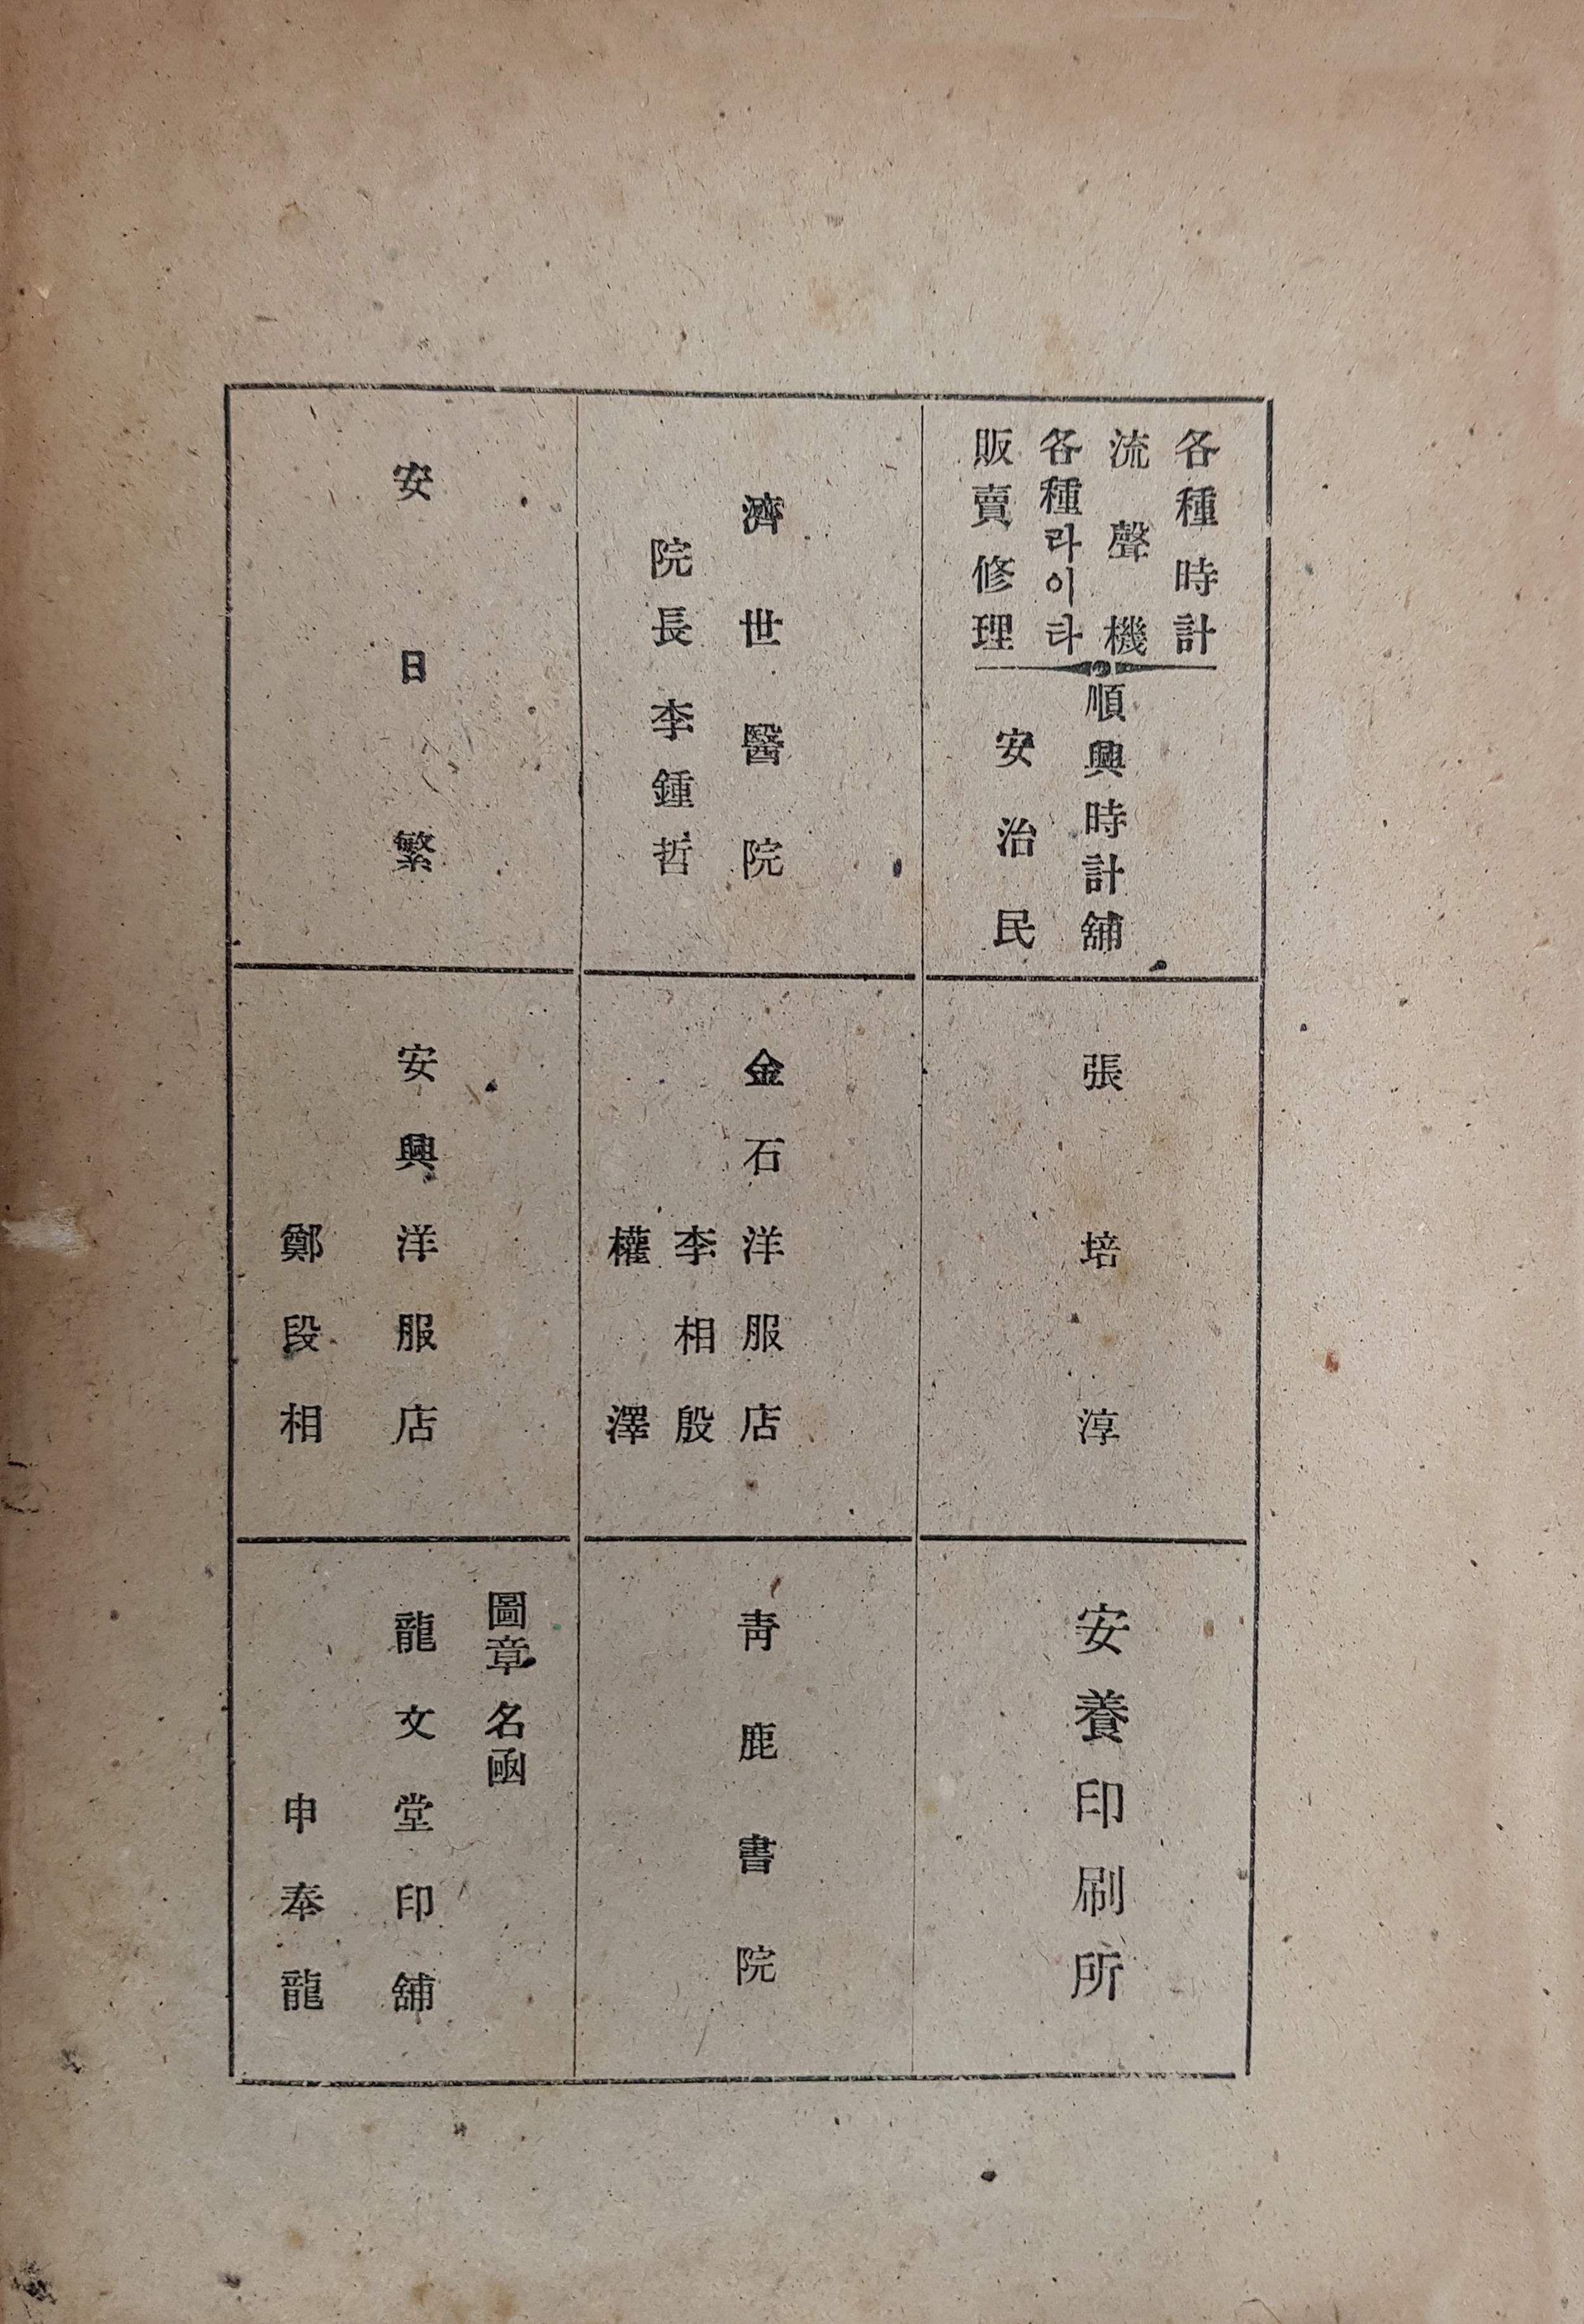 各種時計
流聲機
各種라이타
販賣修理
順興時計舖
安治民
濟世醫院
院長 李鍾哲
安日繁
張培淳
金石洋服店
李相殷
權澤
安興洋服店
鄭段相
安養印刷所
靑鹿書院
圖章 名凾
龍文堂印舖
申奉龍